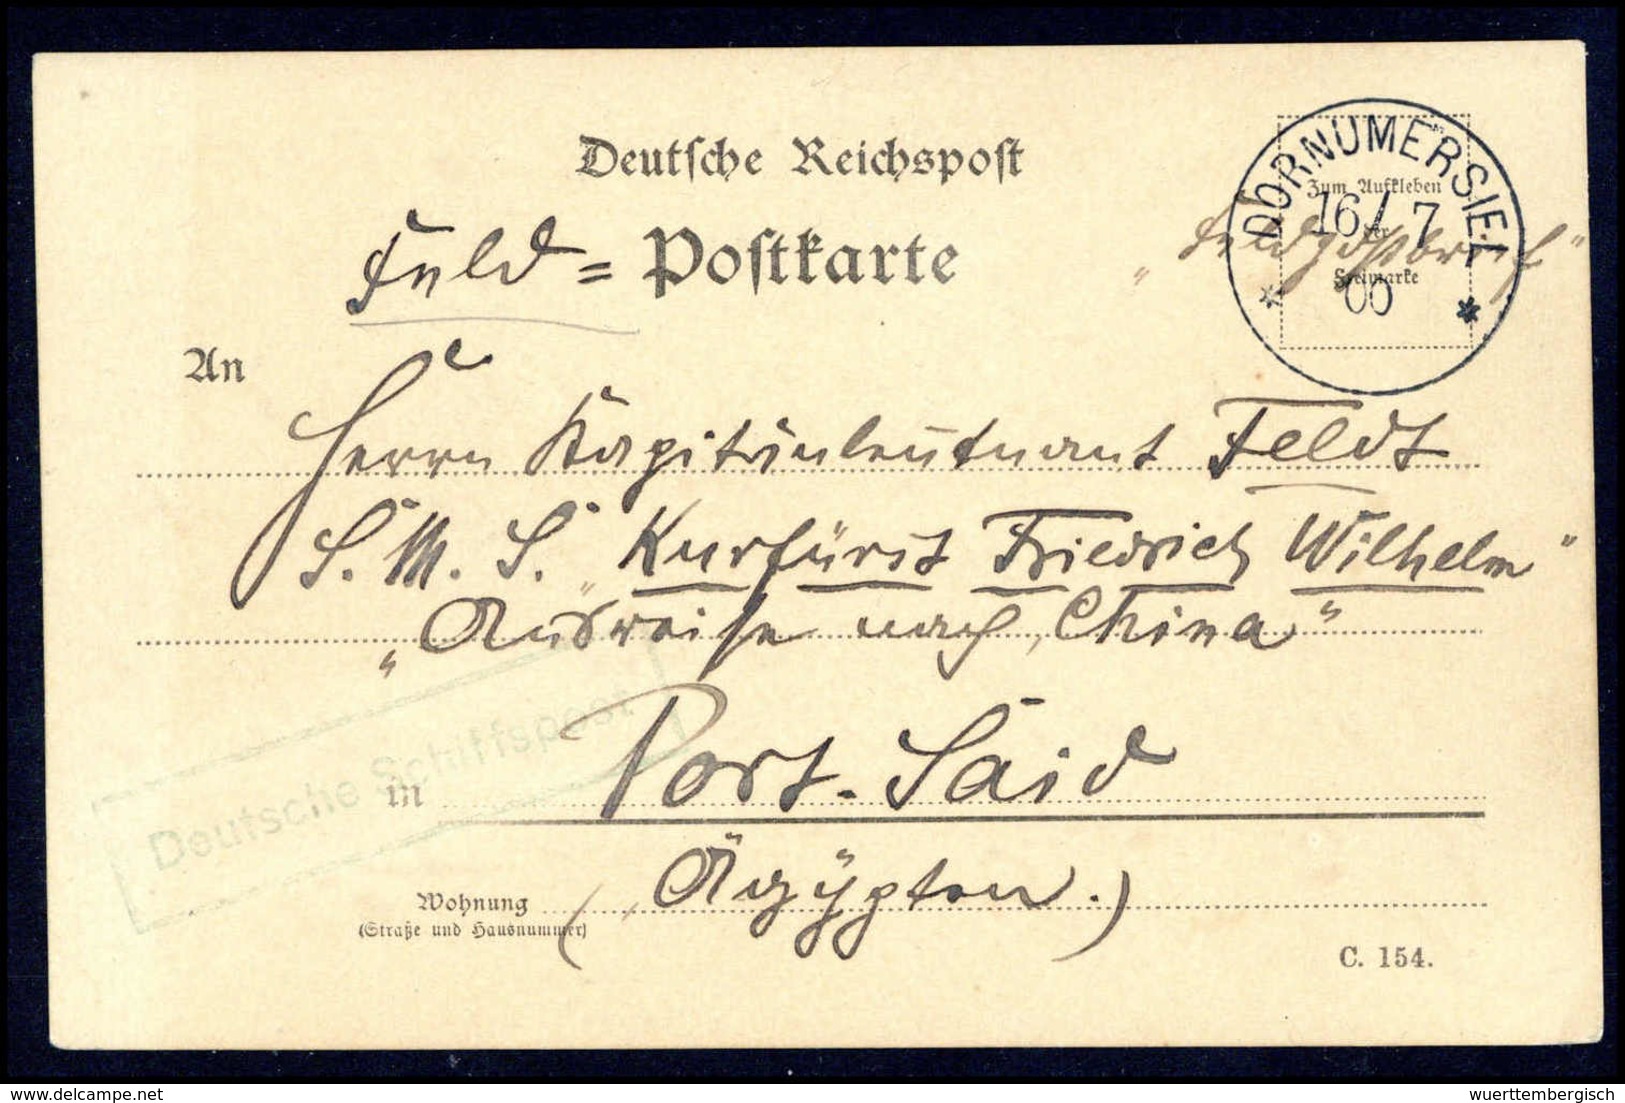 Deutsche Reichspost
Feld = Postkarte
DORNUMERSIEL
Zum Aufkleben
16/7
der
"Feldpostbrief"
Freimarke
00
An
Herrn Kapitänleutnant Feldt
S. M. S. "Kurfürst Friedrich Wilhelm"
"Ausreise nach China"
Deutsche Schiffspost
in Port-Said
Wohnung (Ägypten.)
(Straße und Hausnummer)
C. 154.
delcampe.net
wuerttembergisch